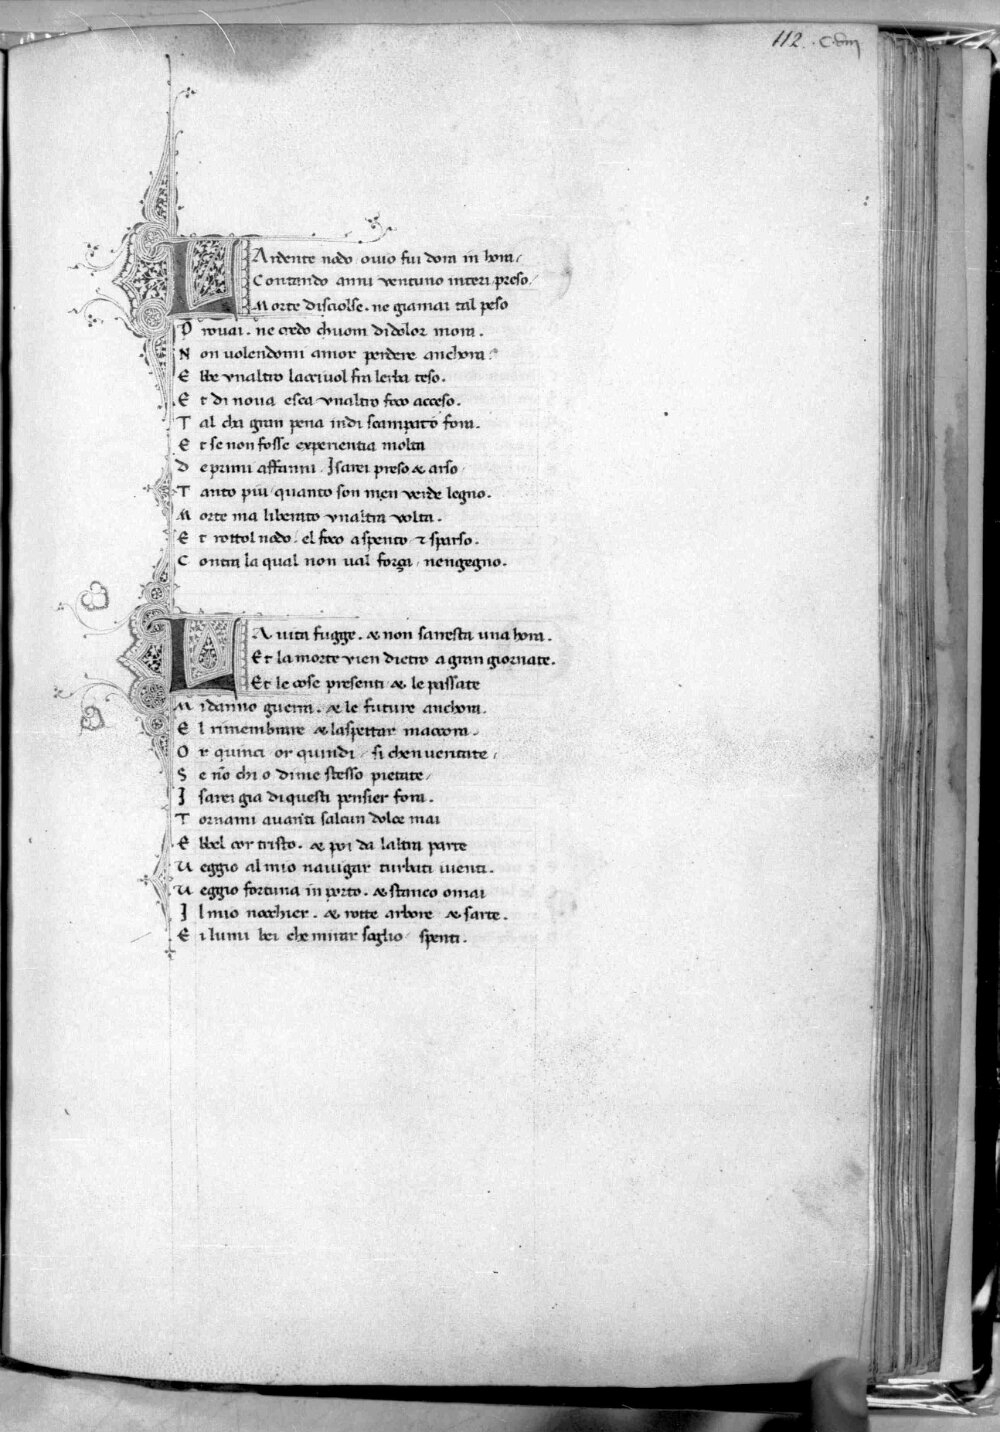 112. 
L Ardente nodo ovio fui dora in hora /
Contando anni ventuno interi preso /
Morte disciolse . ne giamai tal peso
P rouai . ne credo chuom di dolor mora .
N on uolendomi amor perdere anchora .
E bbe vnaltro lacciuol fra lerba teso .
E t di noua esca vnaltro foco acceso .
T al cha gran pena indi scampato fora .
E t se non fosse experientia molta
D e primi affanni / J sarei preso & arso /
T anto piu / quanto son men verde legno .
M orte ma liberato vnaltra volta .
E t rottol nodo . el foco a spento ⁊ sparso .
C ontra la qual non ual força / nengegno .
L A vita fugge . & non sarresta una hora .
Et la morte vien dietro a gran giornate .
Et le cose presenti & le passate
M idanno guerra . & le future anchora .
E l rimembrare & laspettar maccora .
O r quinci or quindi / si chen ueritate /
S e nō chi o di me stesso pietate /
J sarei gia di questi pensier fora .
T ornami auanti salcun dolce mai
E bbel cor tristo . & poi da laltra parte
U eggio al mio nauigar turbati iuenti .
U eggio fortuna in porto . & stanco omai
J l mio nocchier . & rotte arbore & sarte .
E i lumi bei che mirar soglio / spenti .